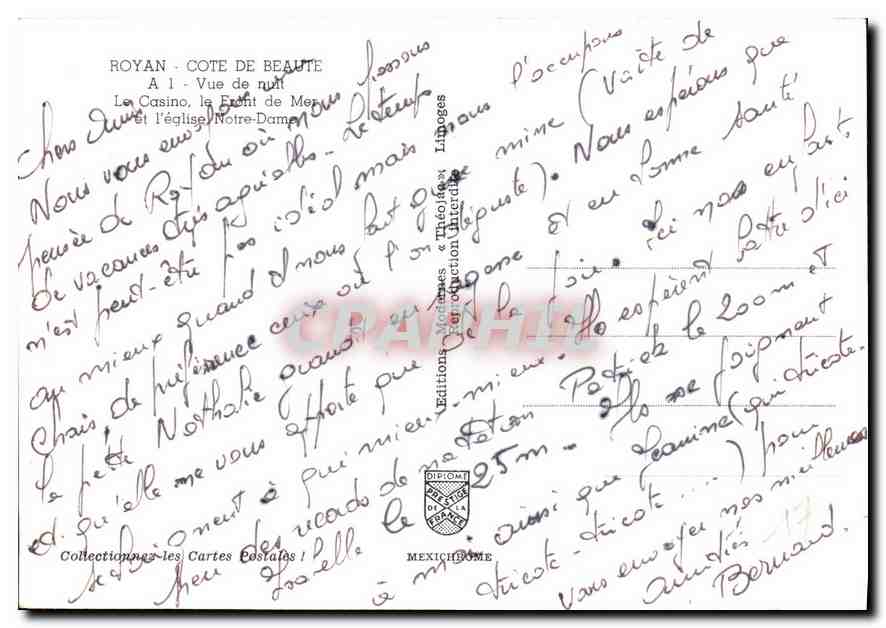 ROYAN - COTE DE BEAUTE
A 1 - Vue de nuit
Le Casino, le Front de Mer
et l'église Notre-Dame
Chers Amis
Nous vous envoyons une
pensée de Royan où nous passons
de vacances très agréables. Le temps
n'est peut-être pas idéal mais nous l'occupons
au mieux quand et nous fait grise mine (Visite de
chais, de préférence ceux où l'on déguste). Nous espérons que
la petite Nathalie grandit en sagesse et en bonne santé
et qu'elle ne vous apporte que de la joie. Ici nos enfants
se baignent à qui mieux-mieux. Ils espèrent battre d'ici
peu des records de natation Patrick le 200m et
Isabelle le 25m. Ils se joignent
à moi ainsi que Janine (qui tricote.
tricote-tricote ....) pour
vous envoyer nos meilleures
amitiés
Bernard.
Editions Modernes « Théojac » Limoges
Reproduction Interdite
CPAPHIL
DIPLOME
PRESTIGE
DE LA
FRANCE
Collectionnez les Cartes Postales !
MEXICHROME
17